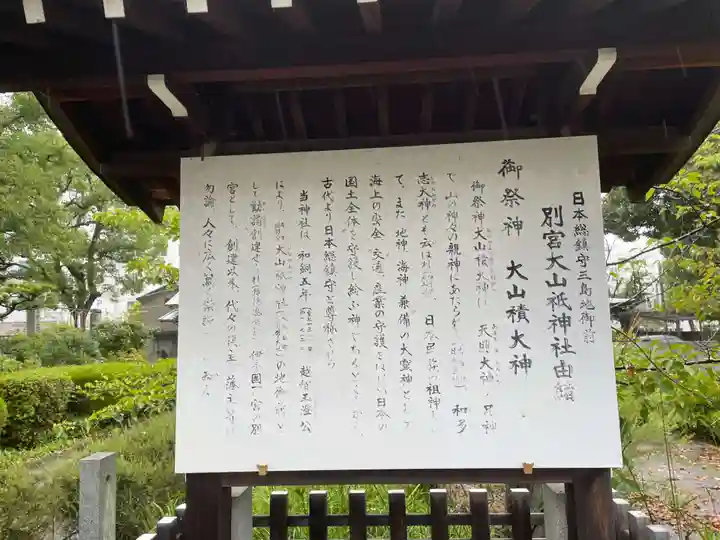 日本総鎮守三島地御前
別宮大山祇神社由緒
御祭神 大山積大神
御祭神大山積大神は 天照大神の兄神
で、山の神々の親神にあたらせ 和多
志大神とも云はれ 日本民族の祖神
て、また 地神 海神 兼備の大霊神として
海上の安全 交通 産業の守護とはじめ日本の
国土全体を守護し給ふ神であるところから
古代より日本総鎮守と尊称され
当神社は、和銅五年 越智玉澄公
により 大山祇神社 の地御前と
して勧請創建され 伊予国一宮の別
宮として、創建以来、代々の 藩主
勿論 人々に広い